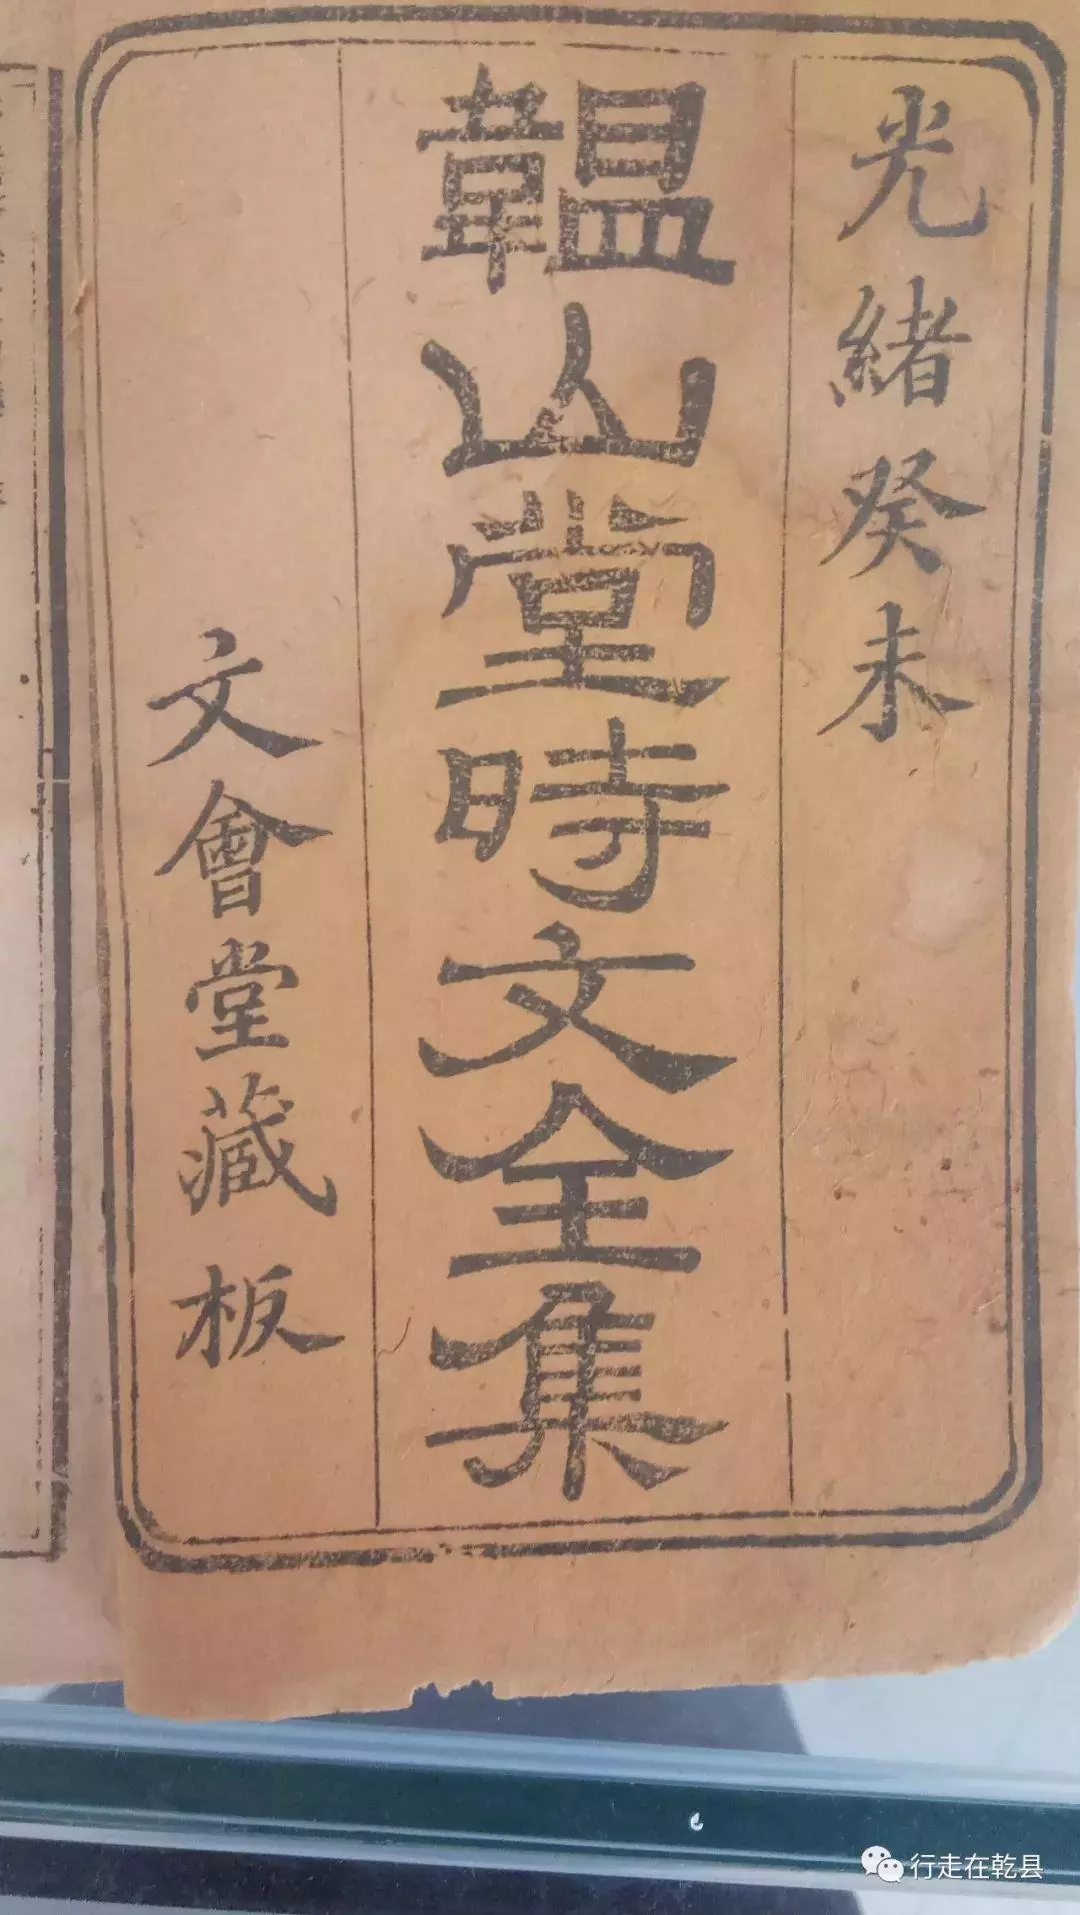 光緒癸未
韞山堂時文全集
文會堂藏板
行走在乾县